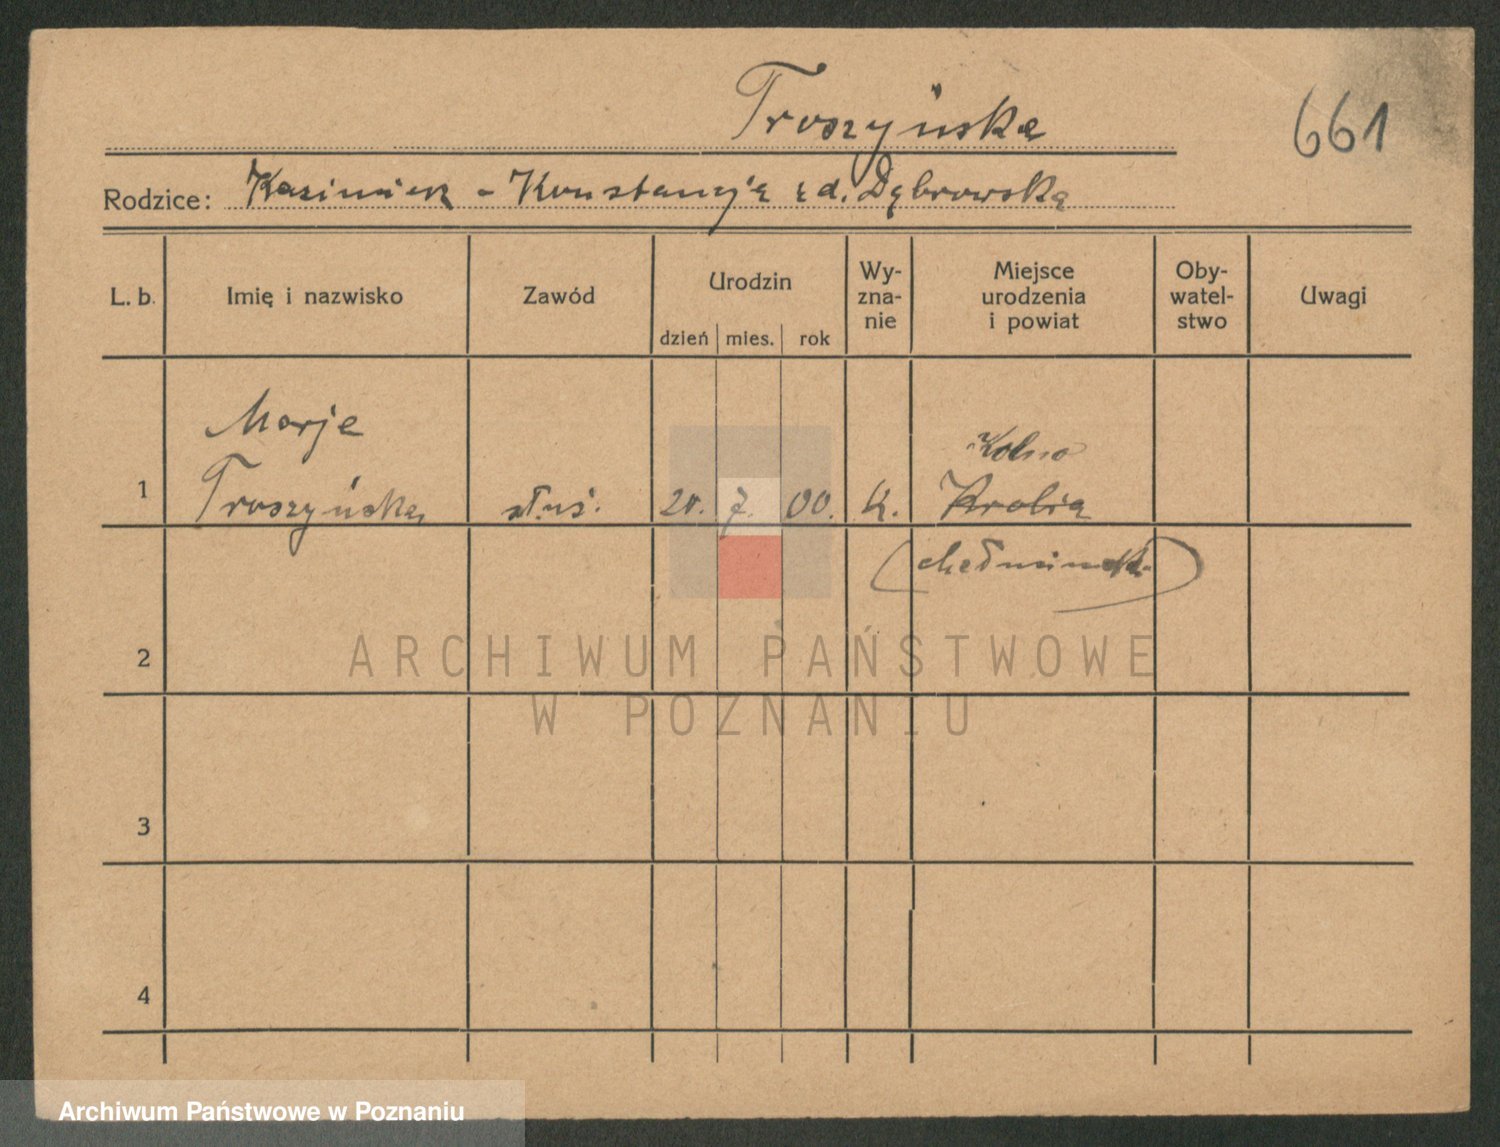 Troszyńska
661
Rodzice: Kazimierz - Konstancja zd. Dąbrowska
L. b. Imię i nazwisko Zawód Urodzin dzień mies. rok Wy-zna-nie Miejsce urodzenia i powiat Oby-watel-stwo Uwagi
Marja
Kolno
1 Troszyńska służ. 20. 7. 00. K. Krobia
(chełmiński)
2
3
4
ARCHIWUM PAŃSTWOWE
W POZNANIU
Archiwum Państwowe w Poznaniu